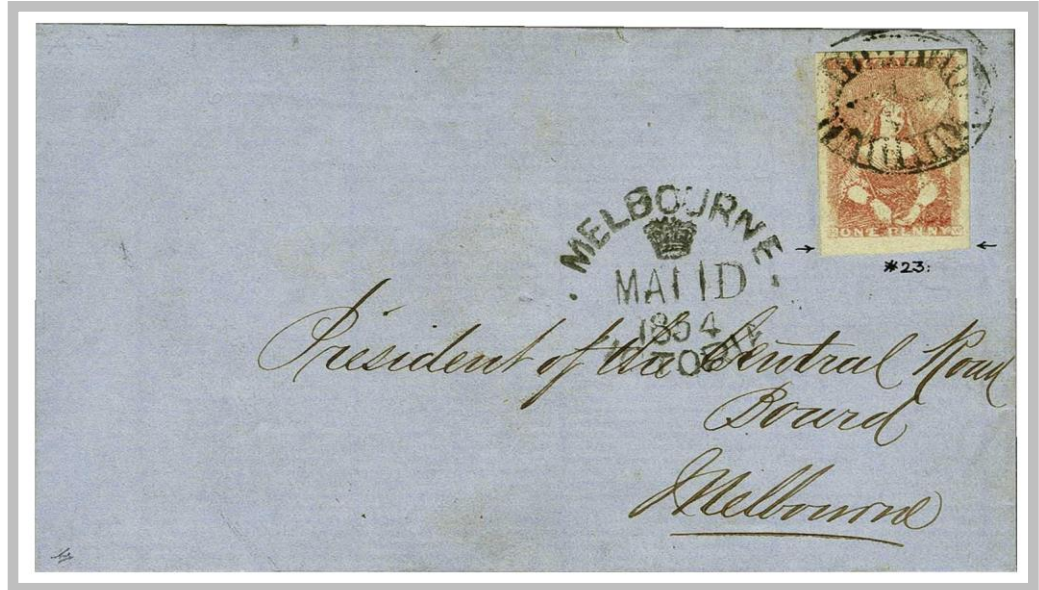 ONE PENNY
#23:
MELBOURNE
MA 1 1 D
1854
VICTORIA
President of the Central Road
Board
Melbourne